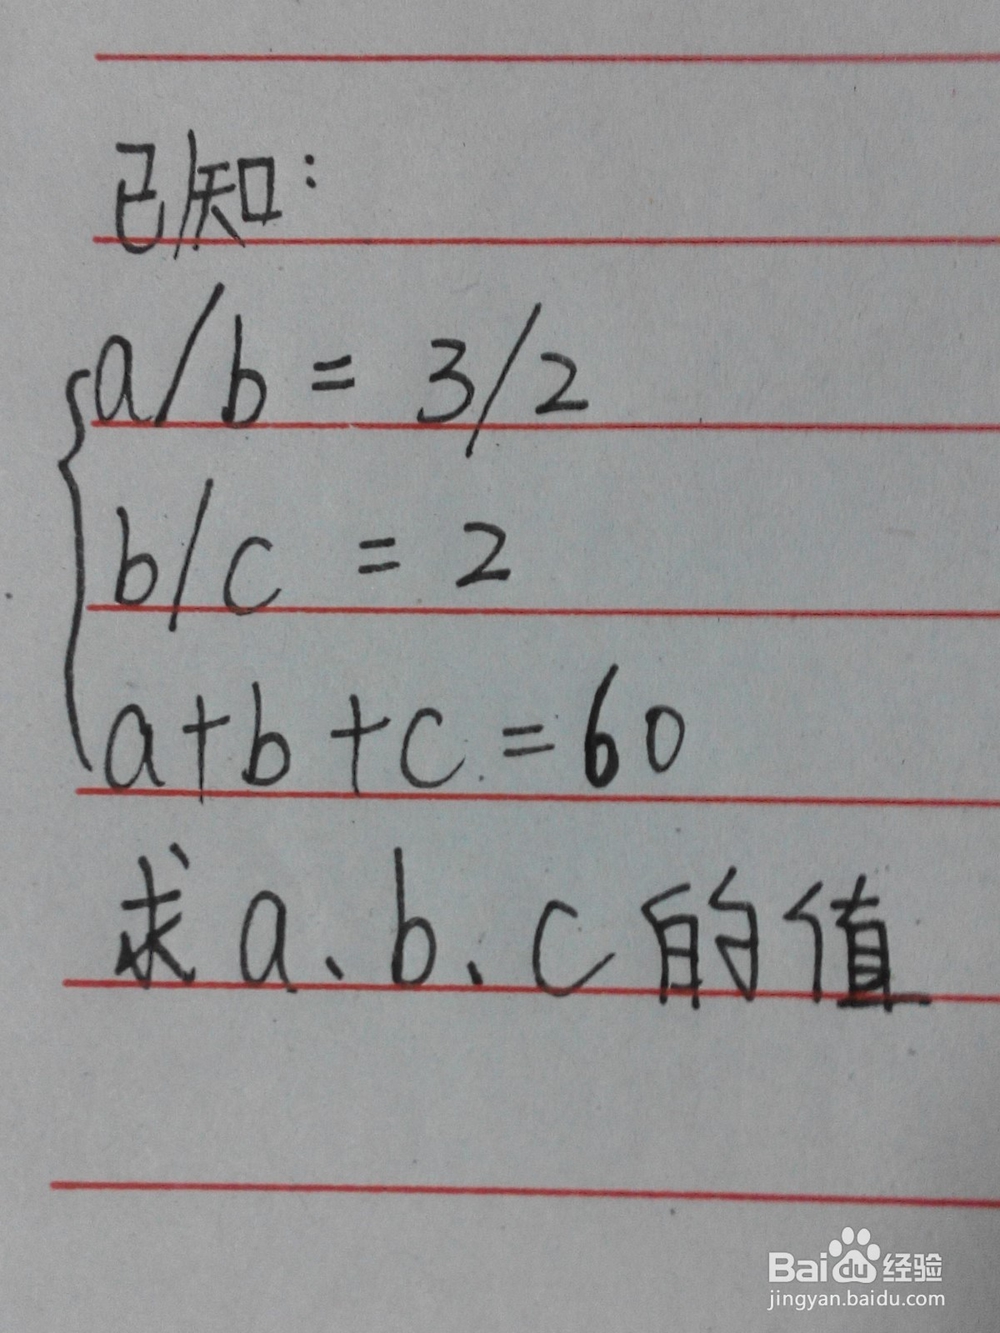 已知:
a/b = 3/2
b/c = 2
a+b+c=60
求a、b、c的值
Baidu经验
jingyan.baidu.com